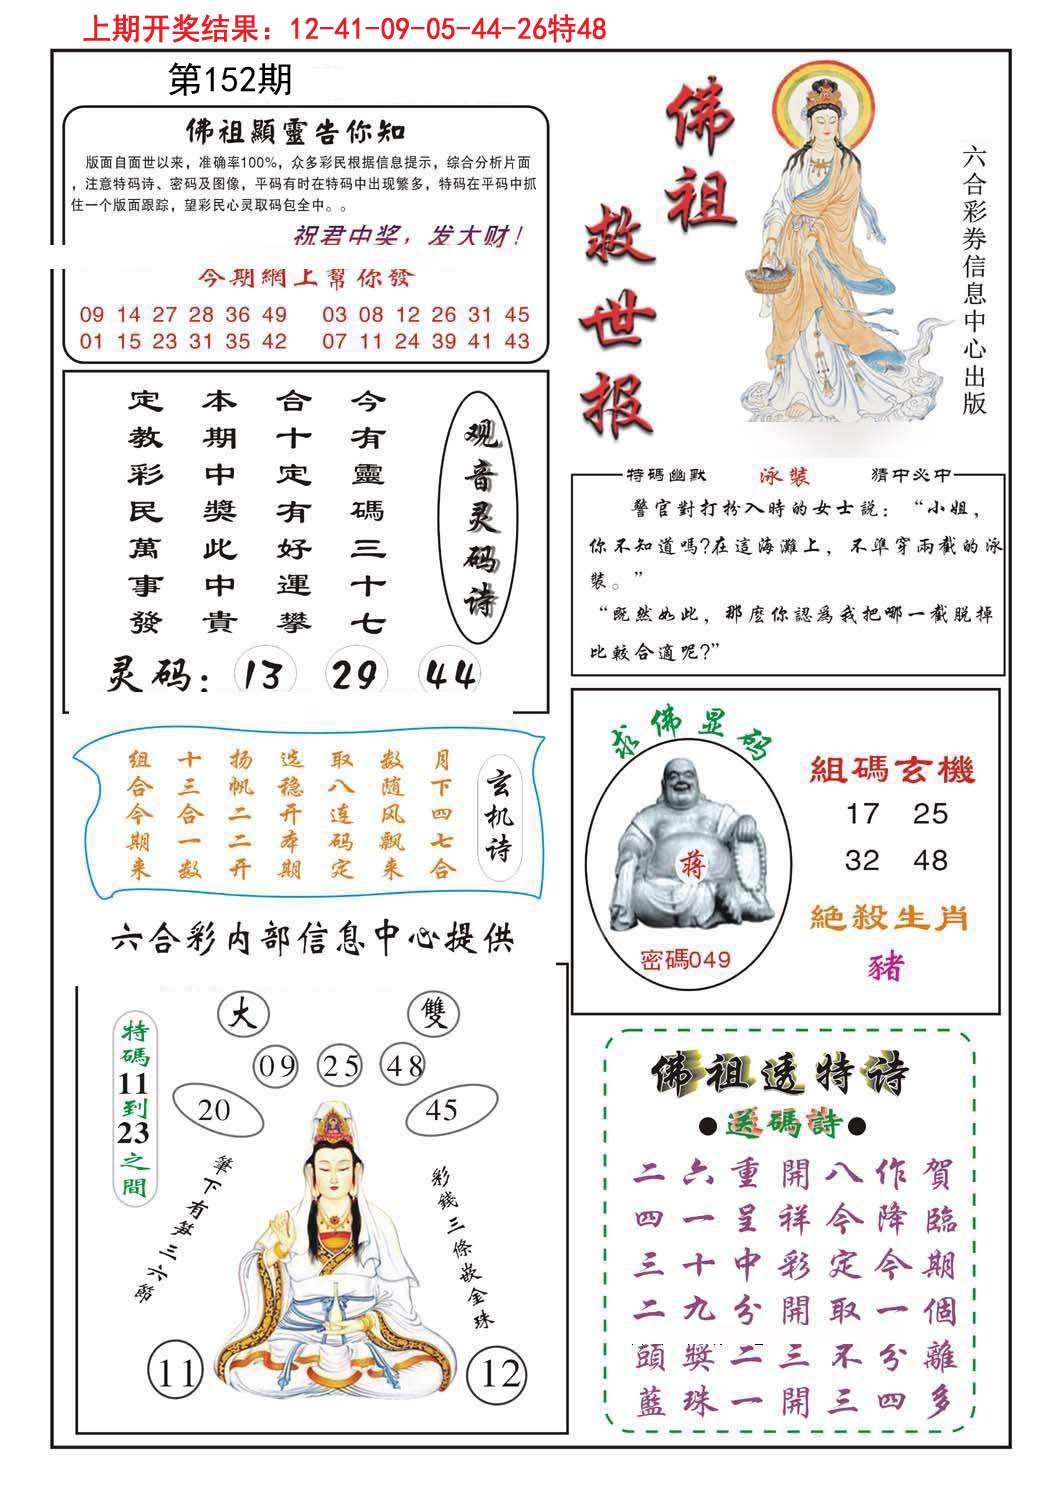 上期开奖结果：12-41-09-05-44-26特48
第152期
佛祖顯靈告你知
版面自面世以来，准确率100%，众多彩民根据信息提示，综合分析片面
，注意特码诗、密码及图像，平码有时在特码中出现繁多，特码在平码中抓
住一个版面跟踪，望彩民心灵取码包全中。。
祝君中奖，发大财！
今期網上幫你發
09 14 27 28 36 49 03 08 12 26 31 45
01 15 23 31 35 42 07 11 24 39 41 43
佛祖
救世报
六合彩券信息中心出版
观音灵码诗
今有靈碼三十七
合十定有好運攀
本期中獎此中貴
定教彩民萬事發
灵码：13 29 44
特碼幽默 泳裝 猜中必中
警官對打扮入時的女士説：“小姐，
你不知道嗎?在這海灘上，不準穿兩截的泳
裝。”
“既然如此，那麽你認爲我把哪一截脱掉
比較合適呢?”
玄机诗
月下四七合
数随风飘来
取八连码定
选稳开本期
扬帆二二开
十三合一数
组合今期来
六合彩内部信息中心提供
求佛显码
蒋
密碼049
組碼玄機
17 25
32 48
絕殺生肖
豬
特碼11到23之間
大 雙
09 25 48
20 45
彩錢三條嵌金珠
筆下有笋三六節
11 12
佛祖透特诗
●送碼詩●
賀臨期個離多
作降今一分四
八今定取不三
開祥彩開三開
重呈中分二一
六一十九獎珠
二四三二頭藍